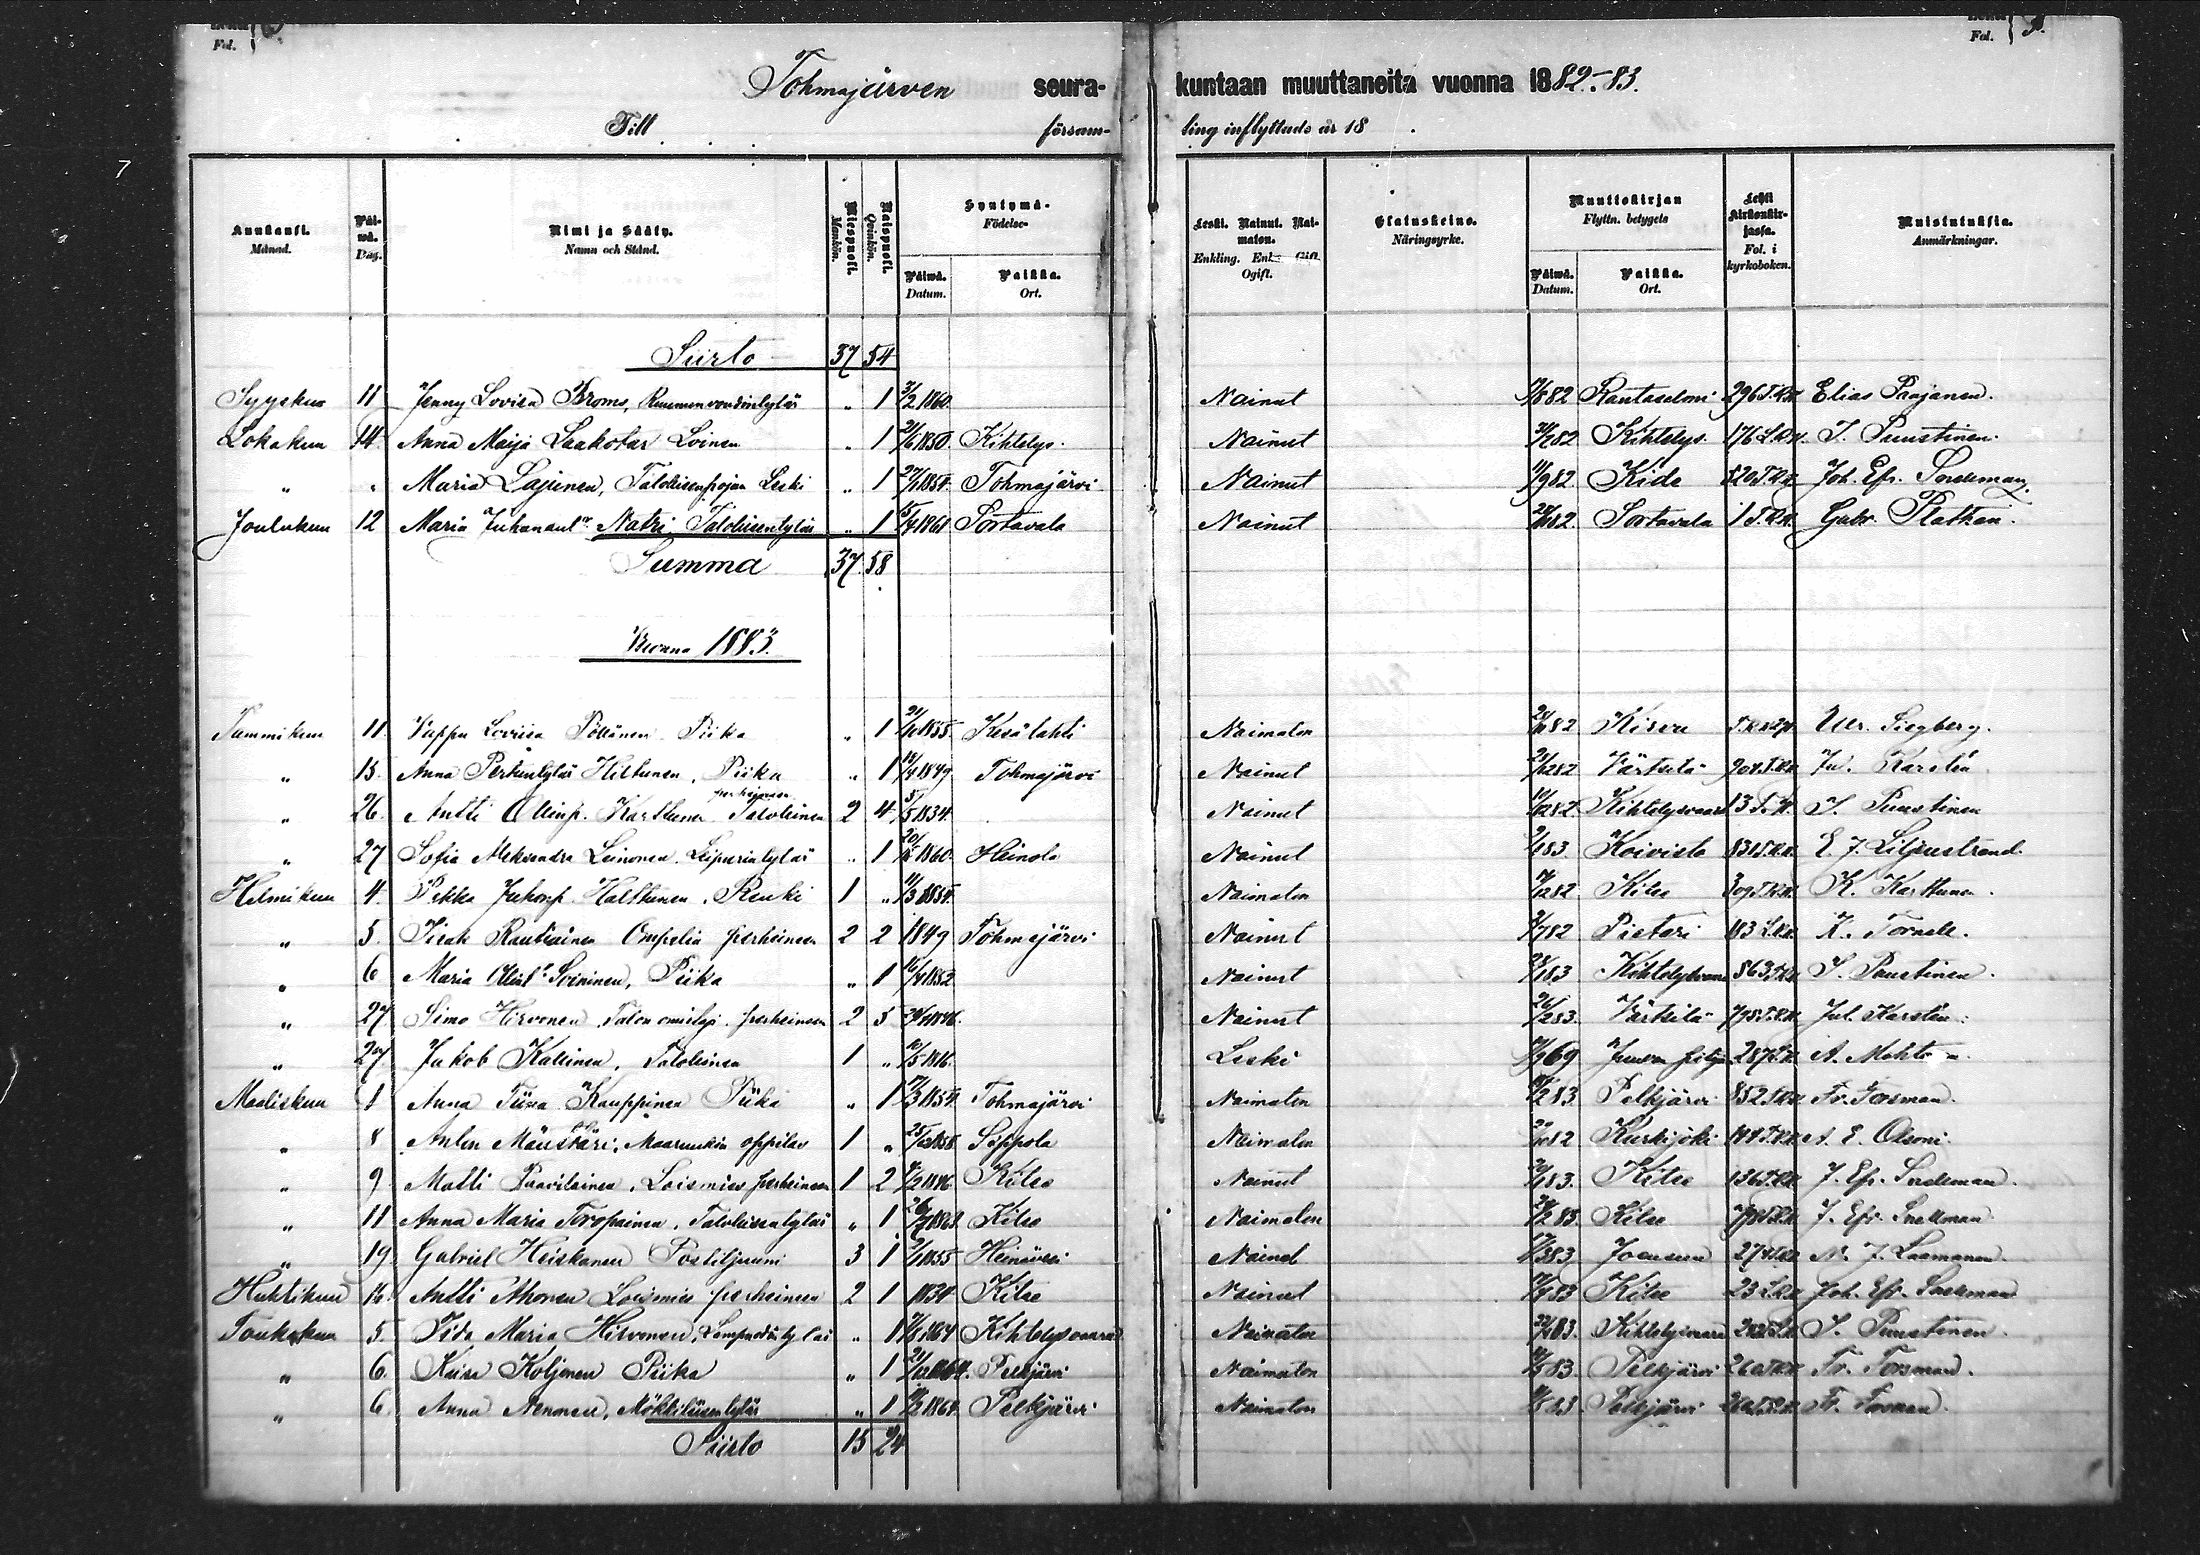 Fol.
Fol.
Tohmajärven seura- kuntaan muuttaneita vuonna 1882-83.
Till församling inflyttade år 18 .
Kuukausi. Månad.
Päiwä. Dag.
Nimi ja Sääty. Namn och Stånd.
Miespuoli. Mankön.
Naispuoli. Qvinkön.
Syntymä- Födelse-
Päiwä. Datum.
Paikka. Ort.
Leski. Nainut. Naimaton. Enkling. Enka. Gift. Ogift.
Elatuskeino. Näringsyrke.
Muuttokirjan Flyttn. betygets
Päiwä. Datum.
Paikka. Ort.
Lehti kirkonkirjassa. Fol. i kyrkoboken.
Muistutuksia. Anmärkningar.
Siirto 37 54
Syyskuu 11 Jenny Lovisa Broms, Ruununvoudintytär " 1 3/2 1860 Nainut 82 Rantasalmi 296 T.K. Elias Paajanen.
Lokakuu 14 Anna Maija Laakotar Loinen " 1 21/6 1850 Kihtelys. Nainut 82 Kihtelys. 176 L.K. J. Puustinen.
" " Maria Lajunen, Talollisenpojan Leski " 1 27/1 1854. Tohmajärvi Nainut 11/9 82 Kide 520 T.K. Joh. Efr. Snellman.
Joulukuu 12 Maria Juhanant. Natri Talollisentytär " 1 1861 Sortavala Nainut 82 Sortavala 1 T.K. Gabr. Plathan.
Summa 37 58
Vuonna 1883.
Tammikuu 11. Vappu Loviisa Pöllänen Piika " 1 1855. Kesälahti Naimaton 82 Kirvu Ulr. Siegberg.
" 15. Anna Pertuntytär Hiltunen, Piika " 1 1849 Tohmajärvi Nainut 12 82 Värtsilä 904 T.K. Jul. Karstén
" 26. Antti Ollinp. Karttunen Talollinen perheineen 2 4 5/5 1834. Nainut 12 82. Kihtelysvaara 13 J. Puustinen
" 27 Sofia Aleksandra Leinonen. Leipurintytär " 1 1860. Heinola Nainut 83 Koivisto 831 T.K. E. J. Liljestrand.
Helmikuu 4. Pekka Jakonp. Halttunen. Renki 1 " 11/3 1854. Naimaton 12 82 Kitee 309 T.K. K. Karttunen.
" 5. Iisak Rautiainen Ompelia perheineen 2 2 1849 Tohmajärvi Nainut 82 Pietari 183 L.K. K. Tornell.
" 6 Maria Ollint. Soininen, Piika " 1 1852 Nainut 1 83 Kihtelysvaara 563 T.K. J. Puustinen.
" 27 Simo Hirvonen, Talon omistaja perheineen 2 5 1846. Nainut 26/2 83. Värtsilä 798 T.K. Jul. Karstén.
" 27 Jakob Kallinen, Talollinen 1 " 1816. Leski 69 287 A. Mohto
Maaliskuu 1 Anna Tiina Kauppinen Piika " 1 17/3 1854. Tohmajärvi Naimaton 2 83 Pelkjärvi 852 T.K. Fr. Forsman.
" 8 Maarunkin oppilas 1 " 25 1858 Sippola Naimaton 82 Kurkijoki A. E. Olsoni.
" 9 Matti Paavilainen. Loismies perheineen 1 2 2 1846 Kitee Nainut 1 83. Kitee 136 T.K. J. Efr. Snellman.
" 11 Anna Maria Toropainen, Talollisentytär " 1 Kitee Naimaton 2 83 Kitee J. Efr. Snellman
" 19. Gabriel Heiskanen Postiljuuni 3 1 1855 Heinävesi Nainut 3 83 Joensuu 274 T.K. N. J. Laamanen.
Huhtikuu 16. Antti Ahonen Loismies perheineen 2 1 1834 Kitee Nainut 83 Kitee 23 L.K. Joh. Efr. Snellman
Toukokuu 5. Iida Maria Hirvonen, Lampuodintytär " 1 1864 Kihtelysvaara Naimaton 83. Kihtelysvaara J. Puustinen.
" 6. Kaisa Koljonen Piika " 1 1864. Pelkjärvi Naimaton 83 Pelkjärvi 260 T.K. Fr. Forsman.
" 6. Anna Nenonen, Mökkiläisentytär " 1 1864. Pelkjärvi Naimaton 83 Pelkjärvi Fr. Forsman.
Siirto 15 24